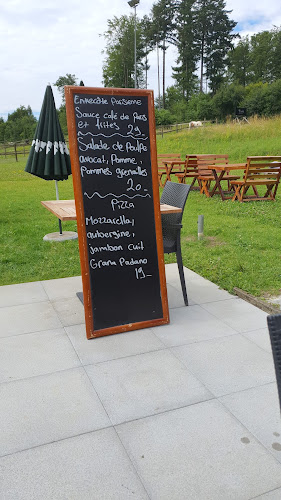 Entrecôte Parisienne
Sauce café de Paris
et frites 29.-
Salade de Poulpe
avocat, pomme,
pommes grenailles
20.-
Pizza
Mozzarella,
aubergine,
jambon cuit
Grana Padano
19.-